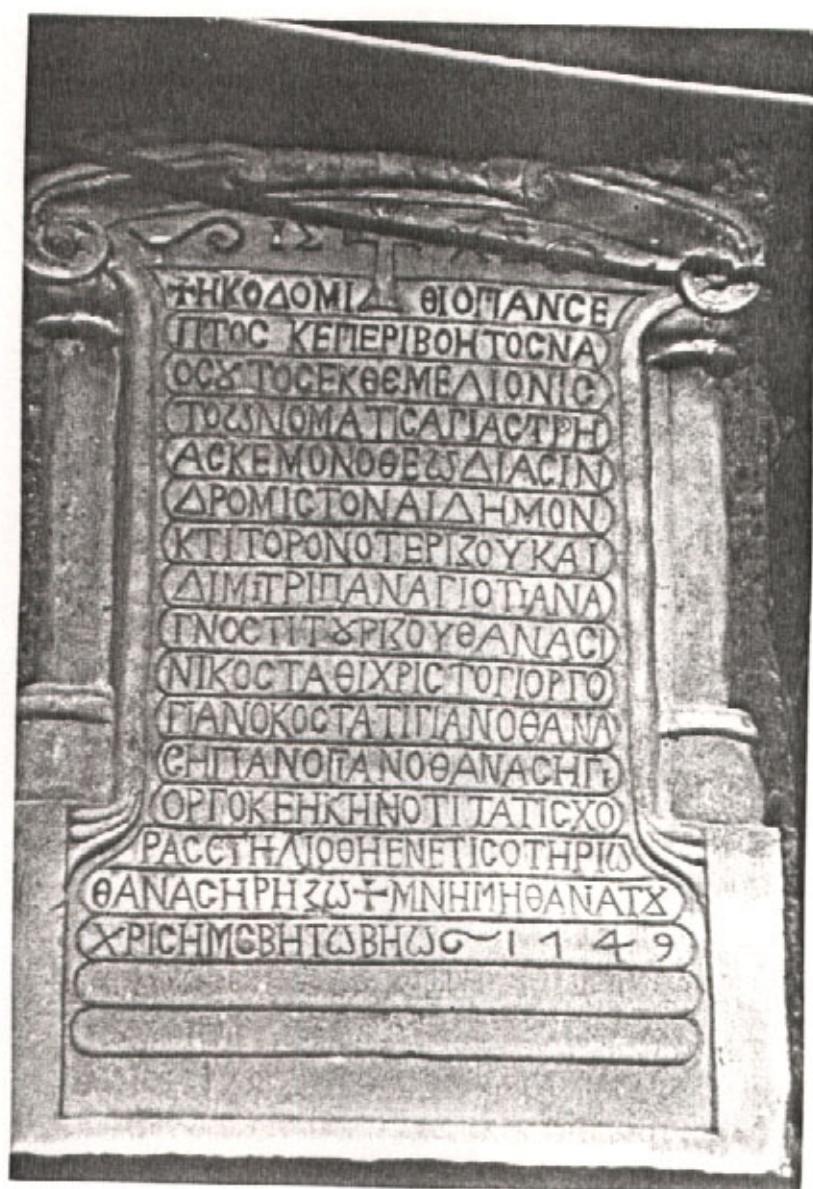 ΙΣ
✝ΗΚΟΔΟΜΙ ΘΙΟΠΑΝCΕ
ΠΤΟC ΚΕΠΕΡΙΒΟΗΤΟCΝΑ
ΟCȢΤΟCΕΚΘΕΜΕΛΙΟΝΙC
ΤΟωΝΟΜΑΤΙCΑΓΙΑCΤΡΗ
ΑCΚΕΜΟΝΟΘΕωΔΙΑCΙΝ
ΔΡΟΜΙCΤΟΝΑΙΔΗΜΟΝ
ΚΤΙΤΟΡΟΝΟΤΕΡΙΖΟΥΚΑΙ
ΔΙΜΙΤΡΙΠΑΝΑΓΙΟΤΙΑΝΑ
ΓΝΟCΤΙΤȢΡΙΖΟΥΘΑΝΑCΙ
ΝΙΚΟCΤΑΘΙΧΡΙCΤΟΓΙΟΡΓΟ
ΓΙΑΝΟΚΟCΤΑΤΙΓΙΑΝΟΘΑΝΑ
CΗΠΑΝΟΓΙΑΝΟΘΑΝΑCΗΓΙ
ΟΡΓΟΚΕΗΚΗΝΟΤΙΤΑΤΙCΧΟ
ΡΑCCΤΗΛΙΟΘΗΕΝΕΤΙCΟΤΗΡΙω
ΘΑΝΑCΗΡΗΖω✝ΜΝΗΜΗΘΑΝΑΤȢ
ΧΡΙCΗΜΕΒΗΤωΒΗω~1749